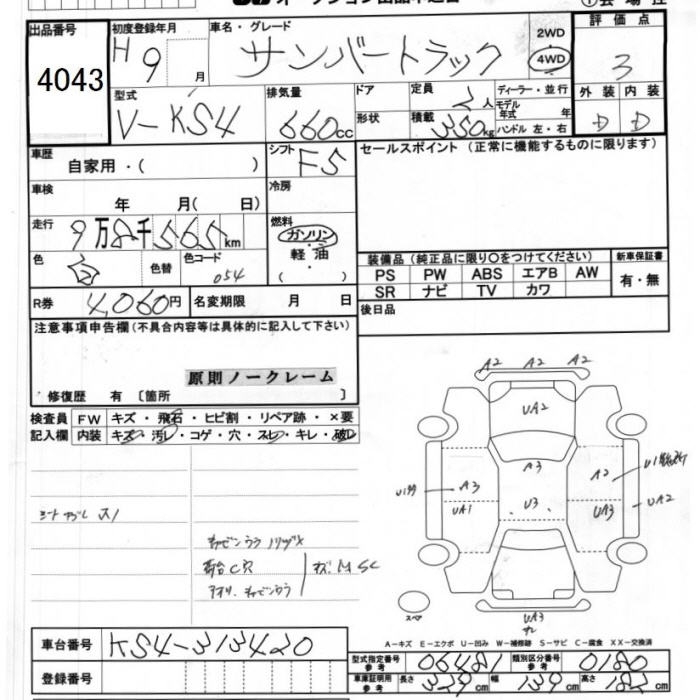 出品番号 初度登録年月 車名・グレード 2WD 評価点
4043 H 9 月 サンバートラック 4WD 3
型式 排気量 ドア 定員 ディーラー・並行 外装 内装
V-KS4 660cc 2人 モデル年式 年 D D
形状 積載 350kg ハンドル 左・右
車歴 シフト セールスポイント (正常に機能するものに限ります)
自家用・( ) F5
車検 冷房
年 月( 日)
走行 燃料
9万8千565km ガソリン
色 色替 色コード 軽油
白 054 ( )
装備品(純正品に限り○をつけてください) 新車保証書
PS PW ABS エアB AW 有・無
SR ナビ TV カワ
R券 4,060円 名変期限 月 日 後日品
注意事項申告欄(不具合内容等は具体的に記入して下さい)
原則ノークレーム
修復歴 有 〔箇所 〕
検査員 FW キズ・飛石・ヒビ割・リペア跡・×要
記入欄 内装 キズ・汚レ・コゲ・穴・スレ・キレ・破レ
A2 A2 A2
UA2
A3
A3 A2
UA1 U3 UA3 UA2
UA3
スペア
A-キズ E-エクボ U-凹み W-補修跡 S-サビ C-腐食 XX-交換済
車台番号 KS4-313420
型式指定番号 参考 06481 類別区分番号 参考 0180
登録番号
車庫証明用 参考 長さ 329cm 幅 139cm 高さ 182cm